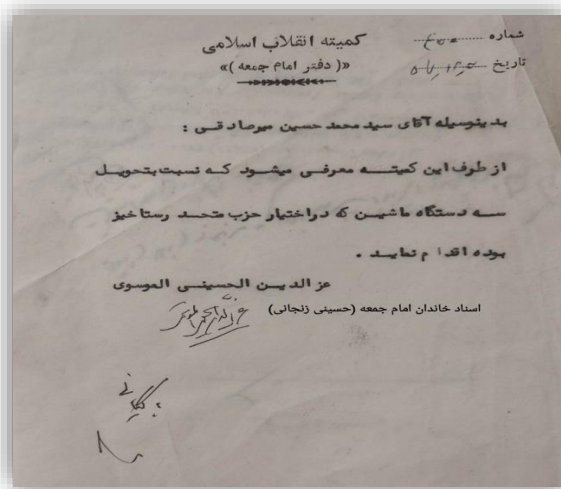 کمیته انقلاب اسلامی
«( دفتر امام جمعه )»
شماره
تاریخ
بدینوسیله آقای سید محمد حسین میرصادقی :
از طرف این کمیته معرفی میشود که نسبت بتحویل
سه دستگاه ماشین که دراختیار حزب متحد رستاخیز
بوده اقدام نماید .
عز الدین الحسینی الموسوی
اسناد خاندان امام جمعه (حسینی زنجانی)